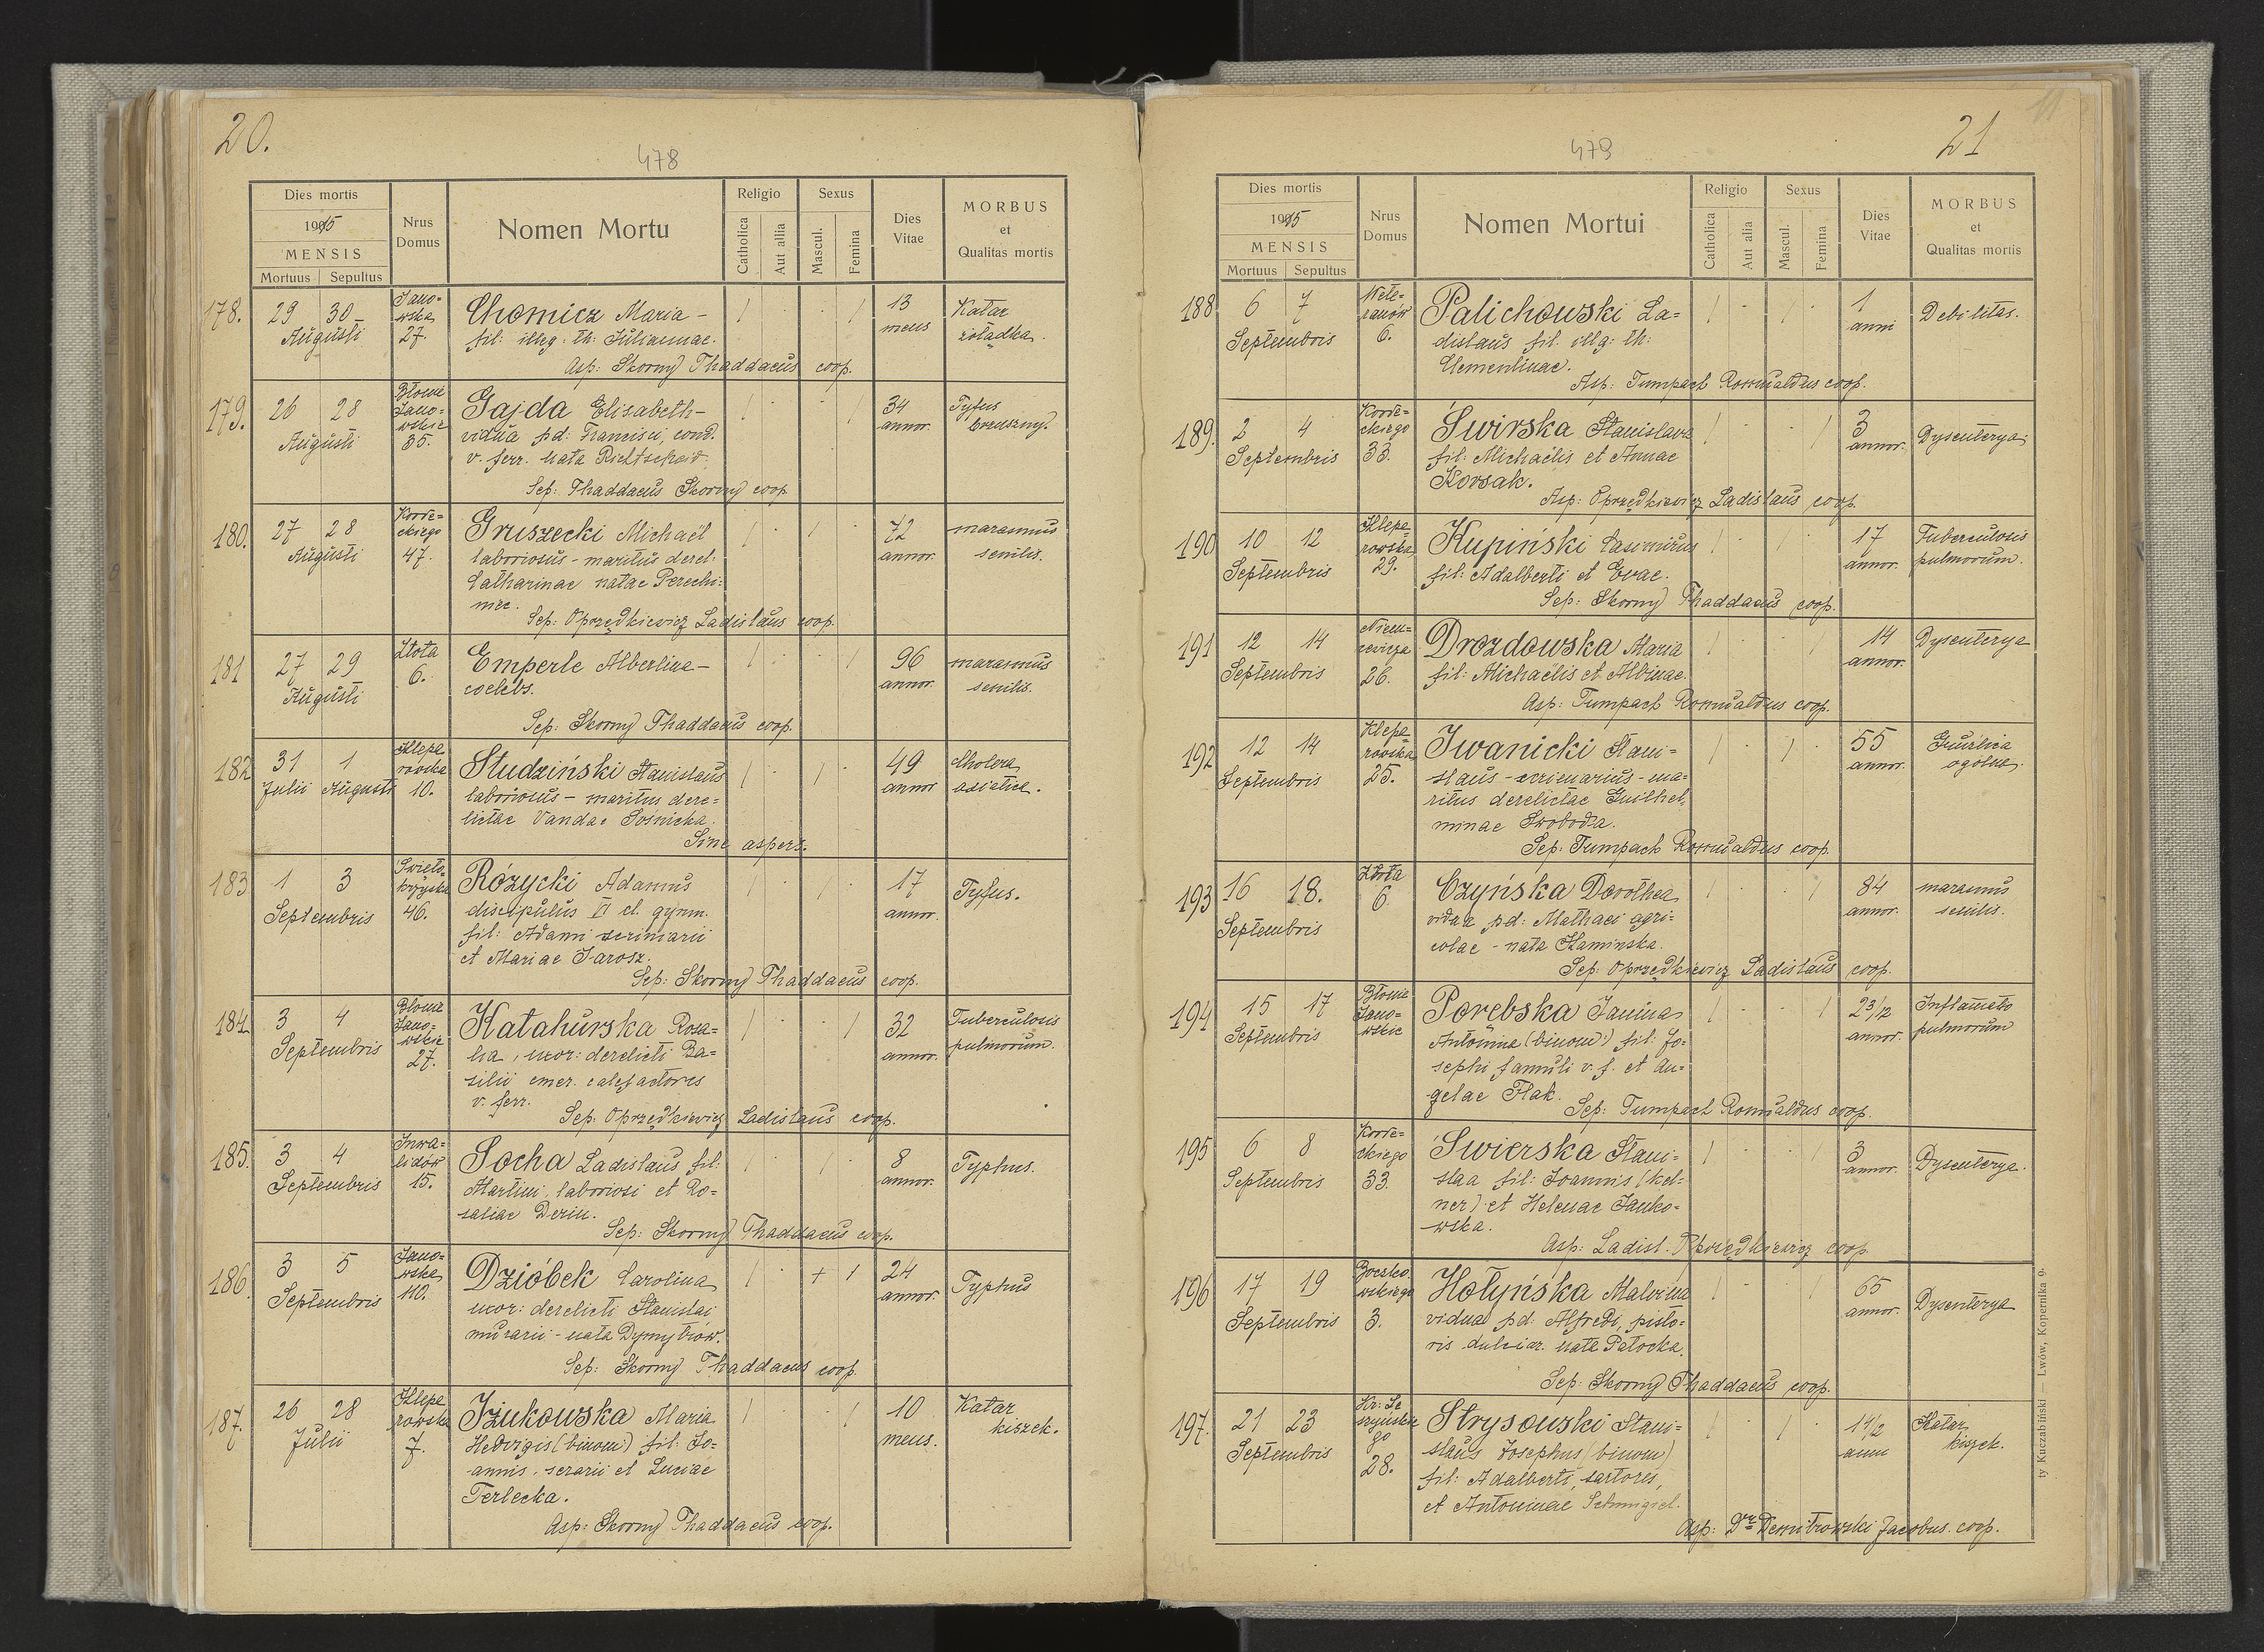 20.
478
Dies mortis
1915
MENSIS
Mortuus Sepultus
Nrus Domus
Nomen Mortu
Religio
Catholica
Aut allia
Sexus
Mascul.
Femina
Dies Vitae
MORBUS
et
Qualitas mortis
178. 29 30 Augusti
Jano=
wska
27.
Chomicz Maria –
fil: illeg. th. Juliannae.
Asp: Skorny Thaddaeus coop.
13
mens
Katar
żołądka.
179. 26 28 Augusti
Błonie
Jano=
wskie
35.
Gajda Elisabeth –
vidua pd: Francisci, cond.
v. ferr. nata
Sep: Thaddaeus Skorny coop
34
annor.
Tyfus
brzuszny.
180. 27 28 Augusti
Korde=
ckiego
47.
Gruszecki Michaël
laboriosus – maritus derel:
Catharinae natae
Sep: Oprzędkiewicz Ladislaus coop.
72
annor.
marasmus
senilis.
181 27 29 Augusti
Złota
6.
Emperle Albertina –
coelebs.
Sep: Skorny Thaddaeus coop.
96
annor.
marasmus
senilis.
182 31 1
Julii Augusti
Klepa
rowska
10.
Studziński Stanislaus
laboriosus – maritus dere=
lictae Vandae Sosnicka.
Sine aspers.
49
annor
Cholera
asiatica.
183 1 3 Septembris
Święto
krzyska
46.
Różycki Adamus
discipulus VI cl. gymn.
fil: Adami scriniarii
et Mariae Jarosz.
Sep: Skorny Thaddaeus coop.
17
annor.
Tyfus.
184. 3 4 Septembris
Błonie
Jano=
wskie
27.
Katahurska Rosa=
lia, uxor: derelicti Ba=
silii emer. calefactoris
v. ferr.
Sep: Oprzędkiewicz Ladislaus coop.
32
annor.
Tuberculosis
pulmorum.
185. 3 4 Septembris
Inwa=
lidów
15.
Socha Ladislaus fil:
Martini, laboriosi et Ro=
saliae Derin.
Sep: Skorny Thaddaeus coop.
8
annor.
Typhus.
186. 3 5 Septembris
Jano=
wska
110.
Dziobek Carolina
uxor: derelicti Stanislai
murarii – nata Dymytrów.
Sep: Skorny Thaddaeus coop.
24
annor.
Typhus
187. 26 28 Julii
Klepa
rowska
7.
Iżukowska Maria
Hedvigis (binom:) fil: Jo=
annis, serarii et Luciae
Terlecka.
Asp: Skorny Thaddaeus coop.
10
mens.
Katar
kiszek.
21
479
Dies mortis
1915
MENSIS
Mortuus Sepultus
Nrus Domus
Nomen Mortui
Religio
Catholica
Aut alia
Sexus
Mascul.
Femina
Dies Vitae
MORBUS
et
Qualitas mortis
188 6 7 Septembris
Wete=
ranów
6.
Palichowski La=
dislaus fil. illg: th:
Clementinae.
Asp: Tumpach Romualdus coop.
1
anni
Debilitas.
189. 2 4 Septembris
Korde=
ckiego
33.
Świrska Stanislava
fil: Michaëlis et Annae
Korsak.
Asp: Oprzędkiewicz Ladislaus coop.
3
annor.
Dysenterya.
190 10 12 Septembris
Klepa
rowska
29.
Kupiński Casimirus
fil: Adalberti et Evae.
Sep: Skorny Thaddaeus coop.
17
annor.
Tuberculosis
pulmorum.
191 12 14 Septembris
Niem=
cewicza
26.
Drozdowska Maria
fil: Michaëlis et Albinae.
Asp: Tumpach Romualdus coop.
14
annor.
Dysenterya
192 12 14 Septembris
Klepa
rowska
25.
Iwanicki Stani=
slaus – scriniarius – ma=
ritus derelictae Guilhel=
minae Swoboda.
Sep: Tumpach Romualdus coop.
55
annor.
Gruźlica
ogólna.
193 16 18. Septembris
Złota
6
Czyńska Dorothea
vidua pd: Mathaei agri=
colae – nata Kaminska.
Sep: Oprzędkiewicz Ladislaus coop.
84
annor.
marasmus
senilis.
194 15 17 Septembris
Błonie
Jano=
wskie
Porębska Janina
Antonina (binom:) fil: Jo=
sephi famuli v. f. et An=
gelae Flak.
Sep: Tumpach Romualdus coop.
2 3/12
annor.
Inflamatio
pulmorum
195 6 8 Septembris
Korde=
ckiego
33.
Świerska Stani=
slaa fil: Joannis (kel=
ner) et Helenae Janko=
wska.
Asp: Ladisl. Oprzędkiewicz coop.
3
annor.
Dysenterya.
196 17 19 Septembris
Boczko
wskiego
3.
Hołyńska Malvina
vidua pd: Alfredi, pisto=
ris dulciar. nata Patocka.
Sep: Skorny Thaddaeus coop.
65
annor.
Dysenterya
197. 21 23 Septembris
Kr: Le
szczyńskie
go
28.
Strysowski Stani=
slaus Josephus (binom)
fil: Adalberti, sartores,
et Antoninae Schmigiel.
Asp: Dr Demitrowski Jacobus coop.
1 4/12
anni
Katar
kiszek.
ty Kuczabiński — Lwów, Kopernika 9.